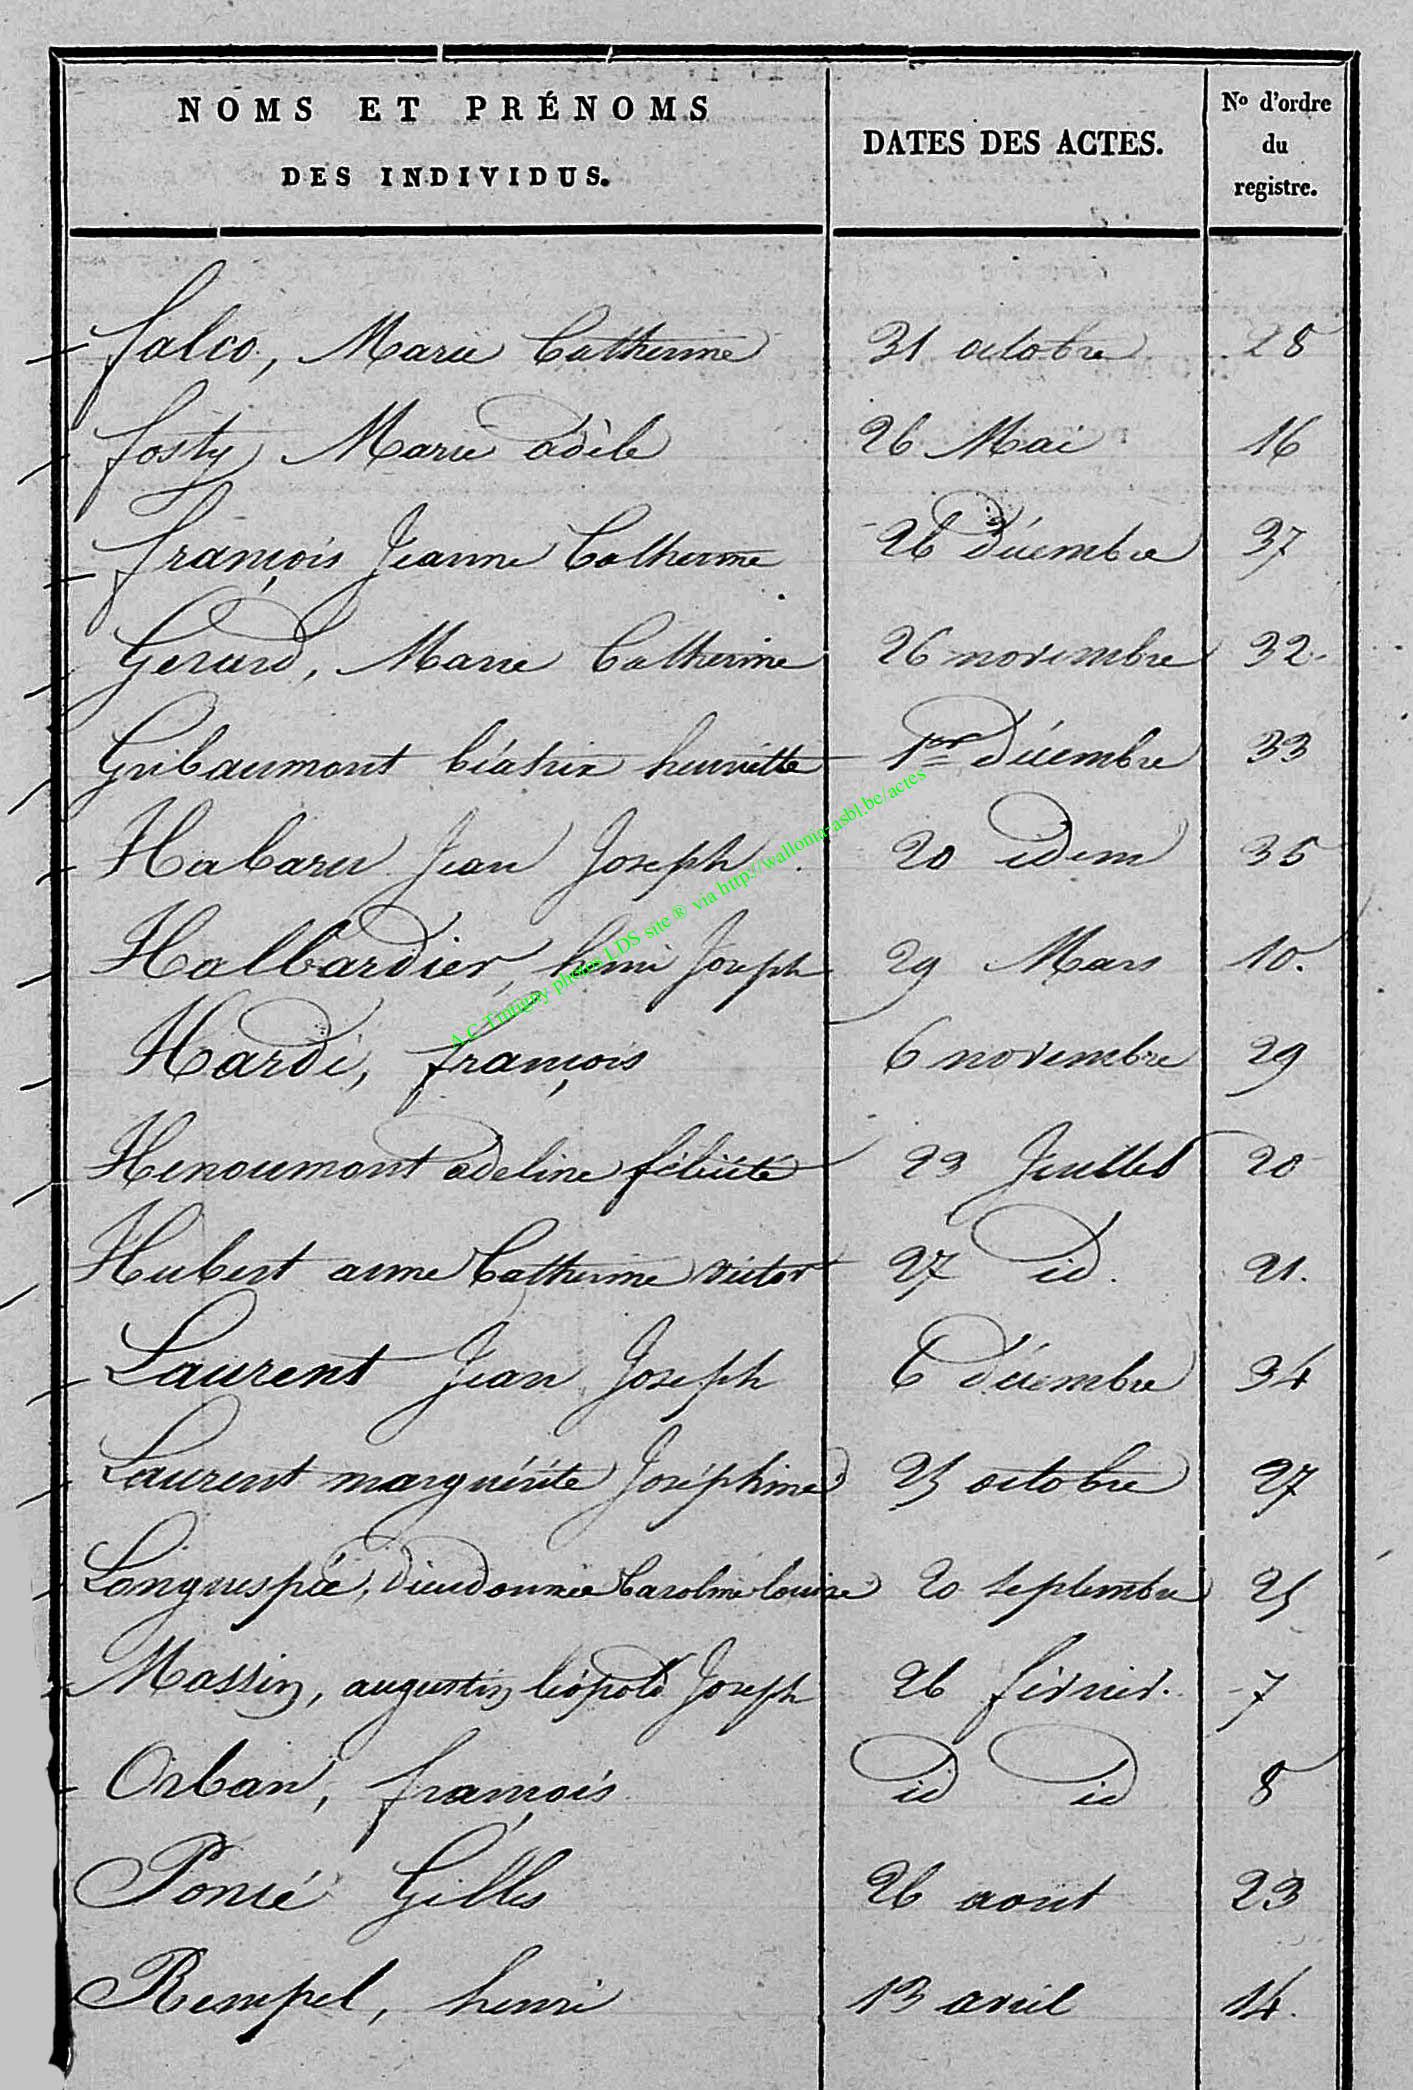 NOMS ET PRÉNOMS
DES INDIVIDUS.
DATES DES ACTES.
No d'ordre
du
registre.
falco, Marie Catherine 31 octobre 28
fosty Marie adèle 26 Mai 16
françois Jeanne Catherine 26 décembre 37
Gerard, Marie Catherine 26 novembre 32
Gribaumont béatrix henriette 1er décembre 33
Habaru Jean Joseph 20 idem 35
Halbardier, henri Joseph 29 Mars 10.
Hardi, françois 6 novembre 29
Henoumont adeline félicité 23 Juillet 20
Hubert anne Catherine victor 27 id. 21.
Laurent Jean Joseph 6 décembre 34
Laurent marguérite Joséphine 25 octobre 27
Longuespée, dieudonnée Caroline louise 20 septembre 25
Massin, augustin léopold Joseph 26 février. 7
Orban, françois id id 8
Poncé Gilles 26 aout 23
Rempel, henri 13 avril 14.
A.C Tintigny photos LDS site ® via http://wallonia-asbl.be/actes